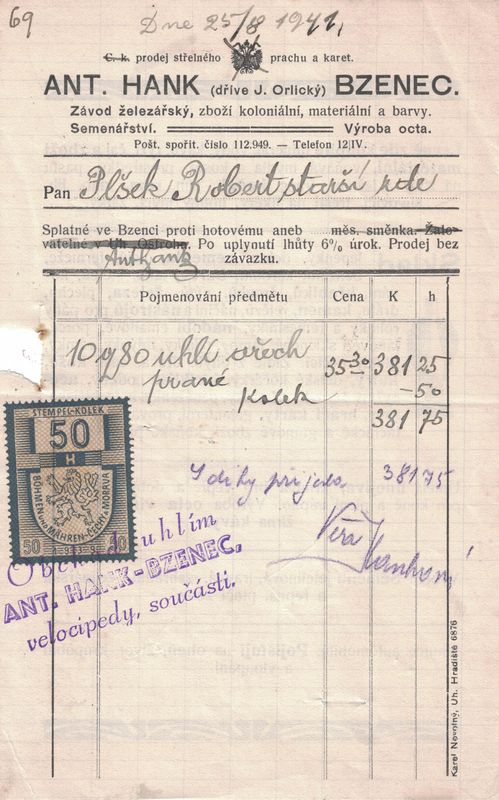 69
Dne 25/8 1941,
C. k. prodej střelného prachu a karet.
ANT. HANK (dříve J. Orlický) BZENEC.
Závod železářský, zboží koloniální, materiální a barvy.
Semenářství. Výroba octa.
Pošt. spořit. číslo 112.949. — Telefon 12/IV.
Pan Plšek Robert starší zde
Splatné ve Bzenci proti hotovému aneb měs. směnka. Žalo-
vatelné v Uh. Ostrohu. Po uplynutí lhůty 6% úrok. Prodej bez
Ant Hank závazku.
Pojmenování předmětu Cena K h
10 q 80 uhlí ořech 35.30 381 25
prané
kolek — 50
381 75
STEMPEL-KOLEK
50
H
BÖHMEN UND MÄHREN-ČECHY A MORAVA
S díky přijala 381 75
Věra Hanková
Obchod uhlím
ANT. HANK-BZENEC,
velocipedy, součásti.
Karel Novotný, Uh. Hradiště 6876